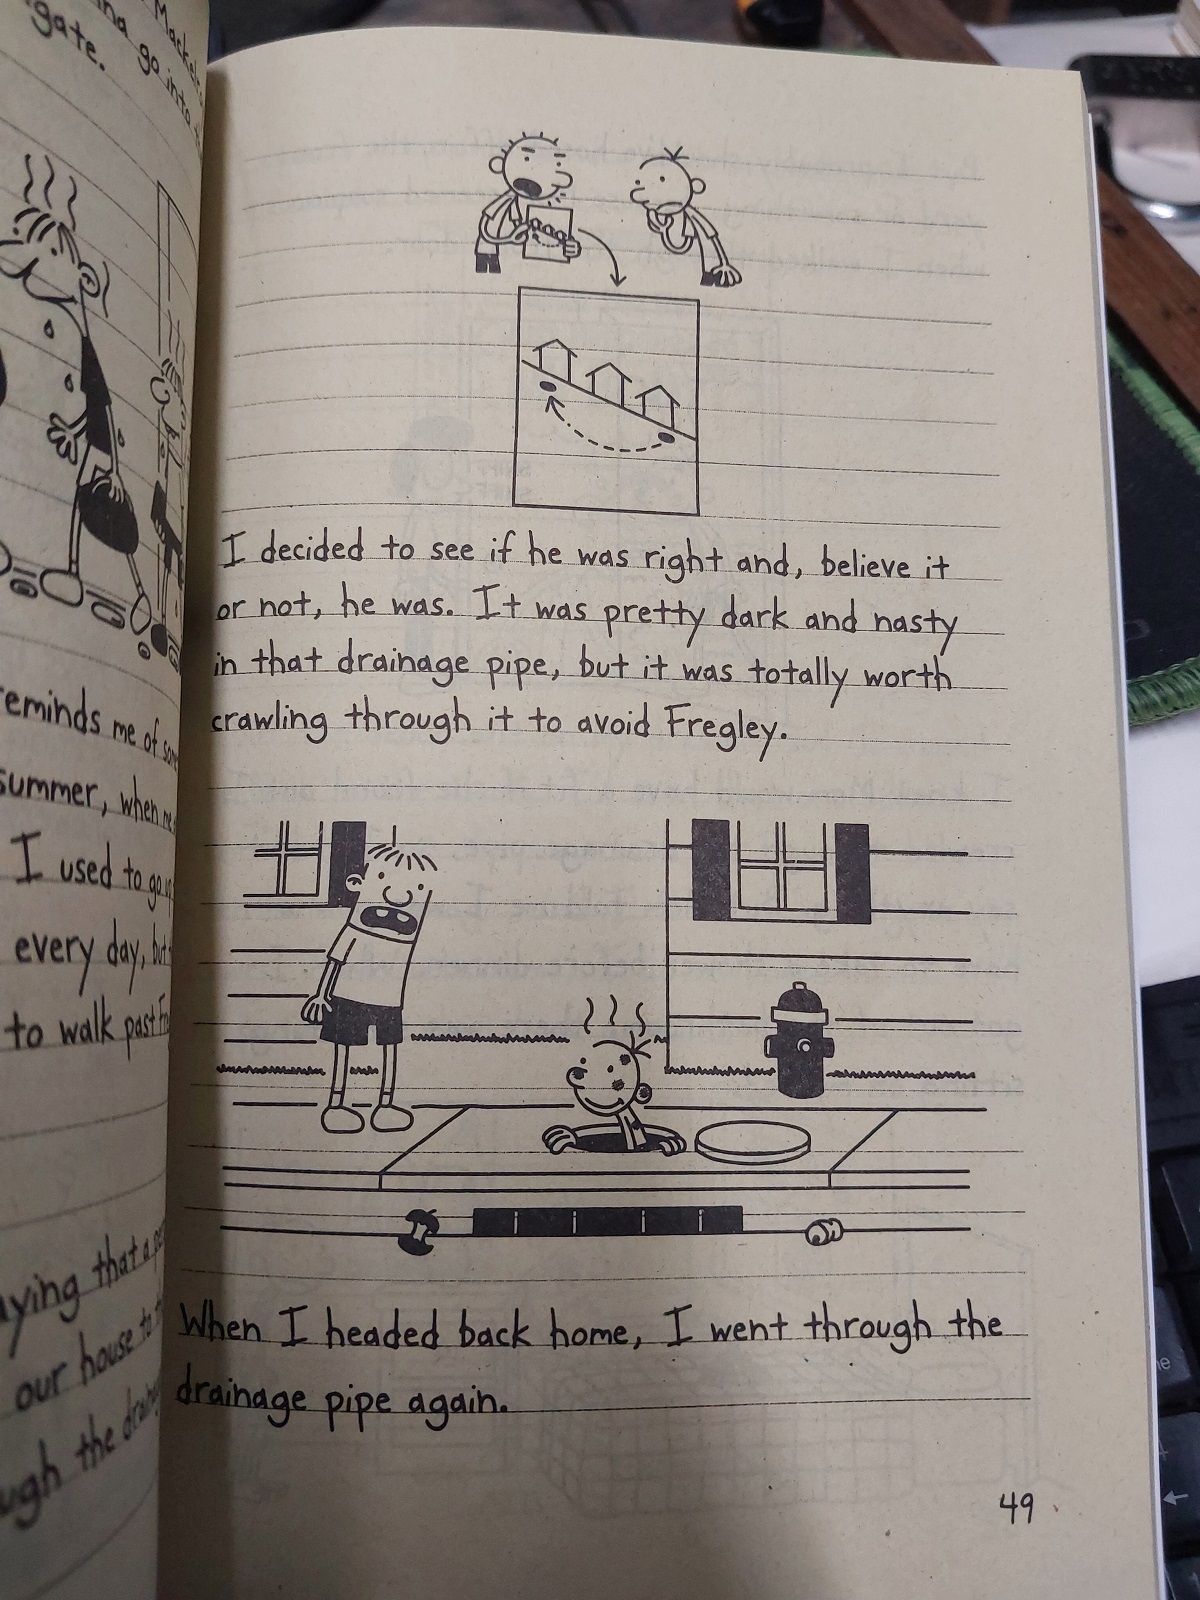 gate.
go into
eminds me of
summer, when me
I used to go
every day, but
to walk past
ying that a
our house to
ugh the
I decided to see if he was right and, believe it
or not, he was. It was pretty dark and nasty
in that drainage pipe, but it was totally worth
crawling through it to avoid Fregley.
When I headed back home, I went through the
drainage pipe again.
49